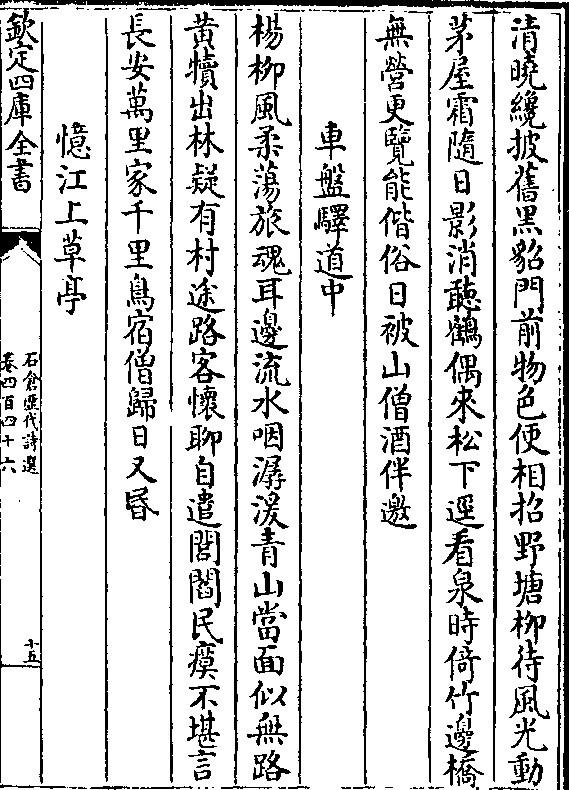 清曉纔披舊黑貂門前物色便相招野塘柳待風光動
茅屋霜隨日影消聽鶴偶來松下逕看泉時倚竹邊橋
無營更覽能偕俗日被山僧酒伴邀
車盤驛道中
楊柳風柔蕩旅魂耳邊流水咽潺湲青山當面似無路
黃犢出林疑有村途路客懷聊自遣閭閻民瘼不堪言
長安萬里家千里鳥宿僧歸日又昏
憶江上草亭
欽定四庫全書
石倉歷代詩選
卷四百四十六
十五